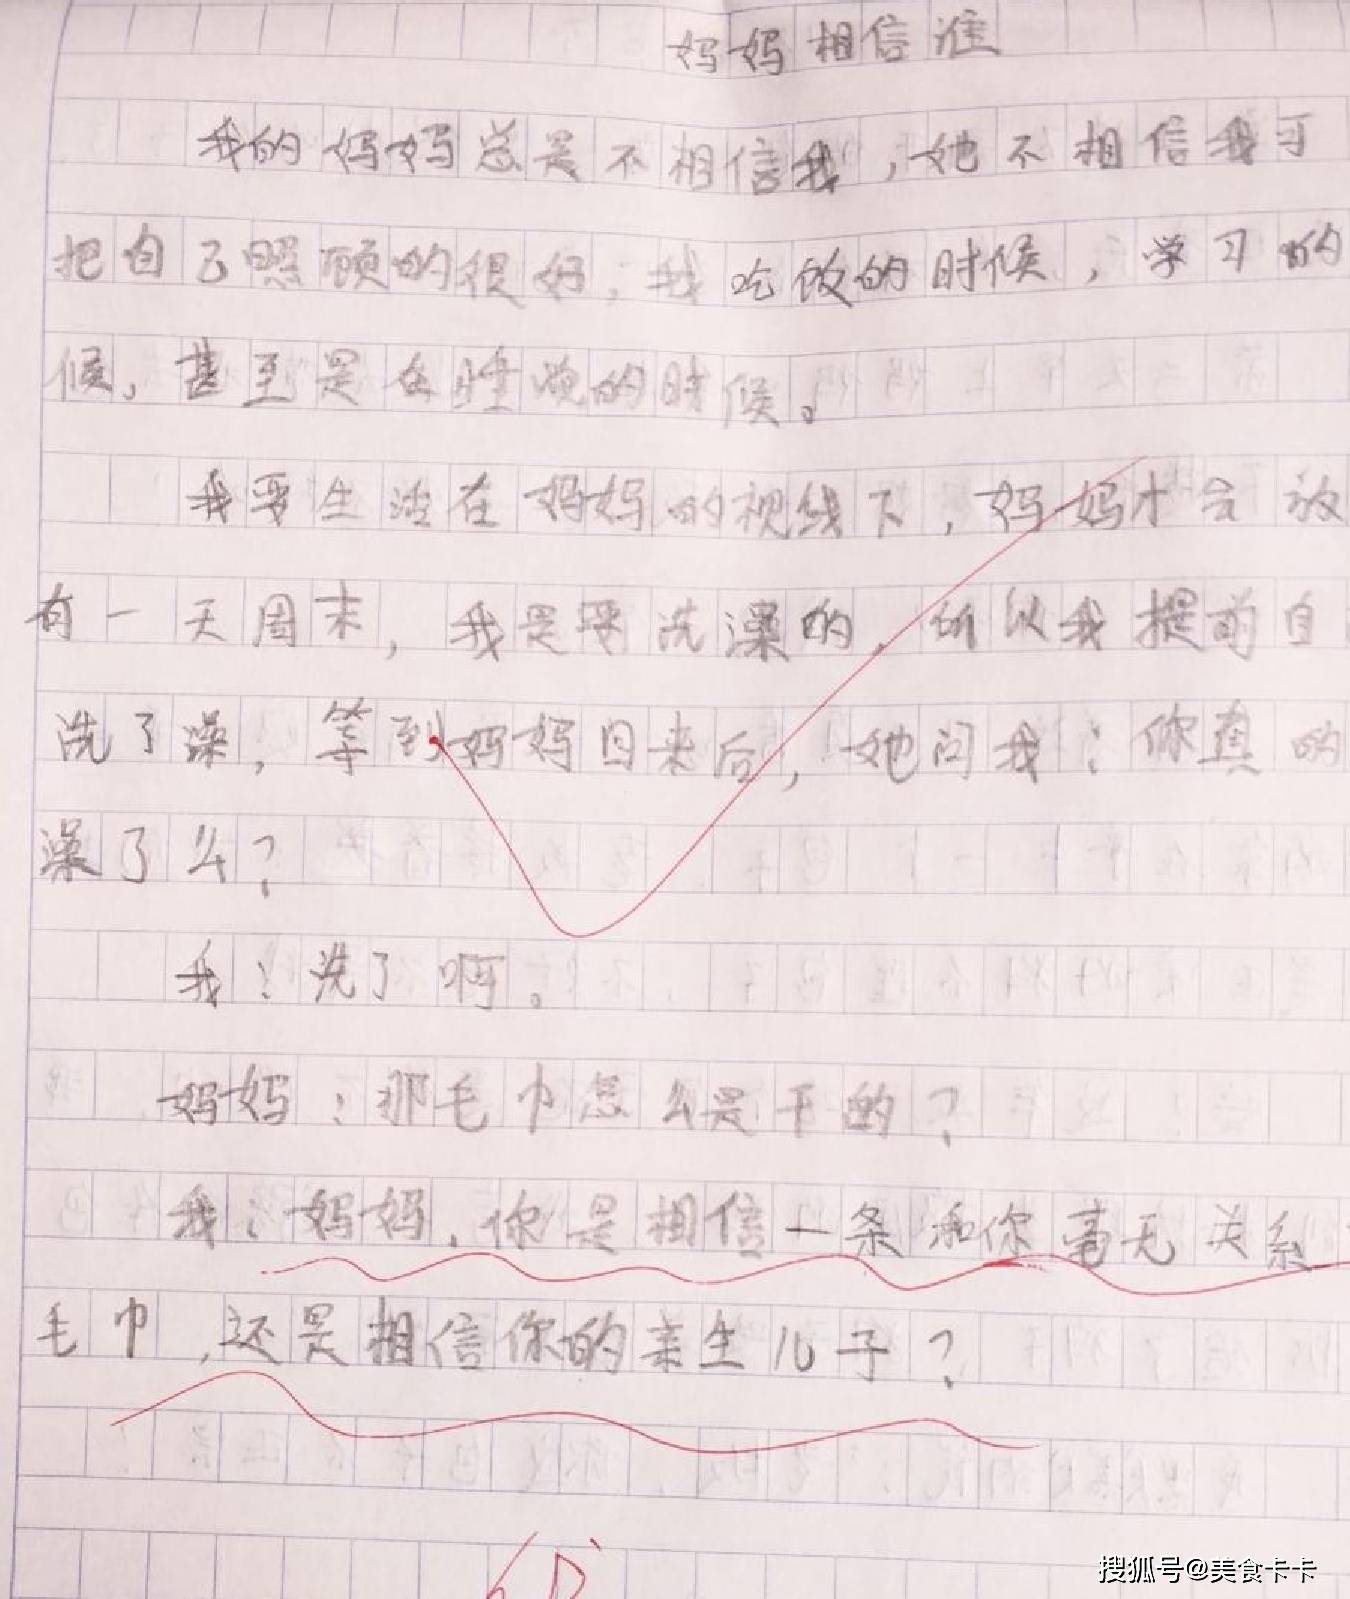 妈妈相信谁
我的妈妈总是不相信我，她不相信我可
把自己照顾的很好，我吃饭的时候，学习的
候，甚至是在睡觉的时候。
我要生活在妈妈的视线下，妈妈才会放
有一天周末，我是要洗澡的，所以我提前自
洗了澡，等到妈妈回来后，她问我：你真的
澡了么？
我：洗了啊。
妈妈：那毛巾怎么是干的？
我：妈妈，你是相信一条和你毫无关系
毛巾，还是相信你的亲生儿子？
搜狐号@美食卡卡